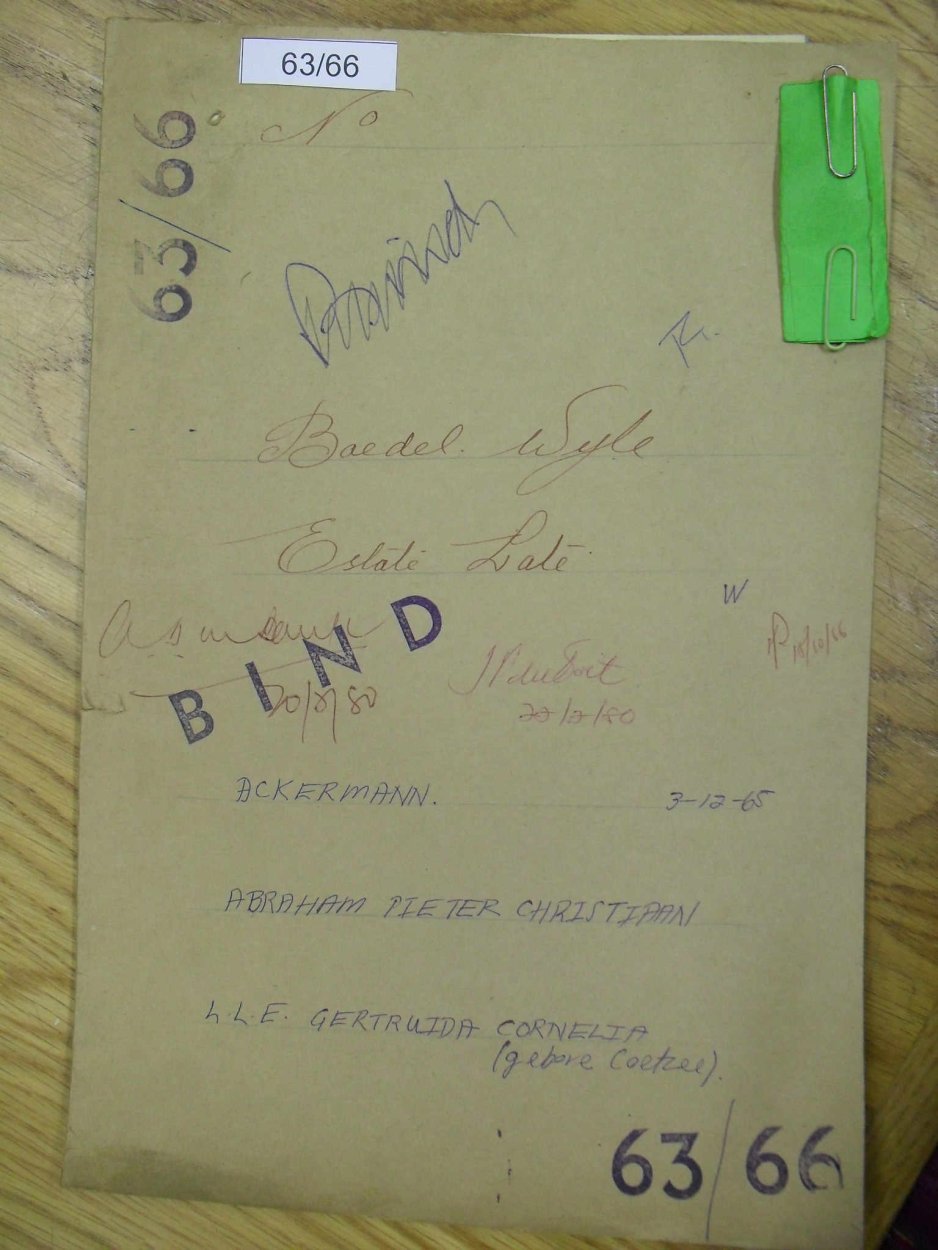 63/66
63/66
No
Boedel Wyle
Estate Late
W
BIND
JP du Toit
18/10/66
20/2/80
22/2/80
ACKERMANN. 3-12-65
ABRAHAM PIETER CHRISTIAAN
L.L.E. GERTRUIDA CORNELIA
(gebore Coetzee).
63/66